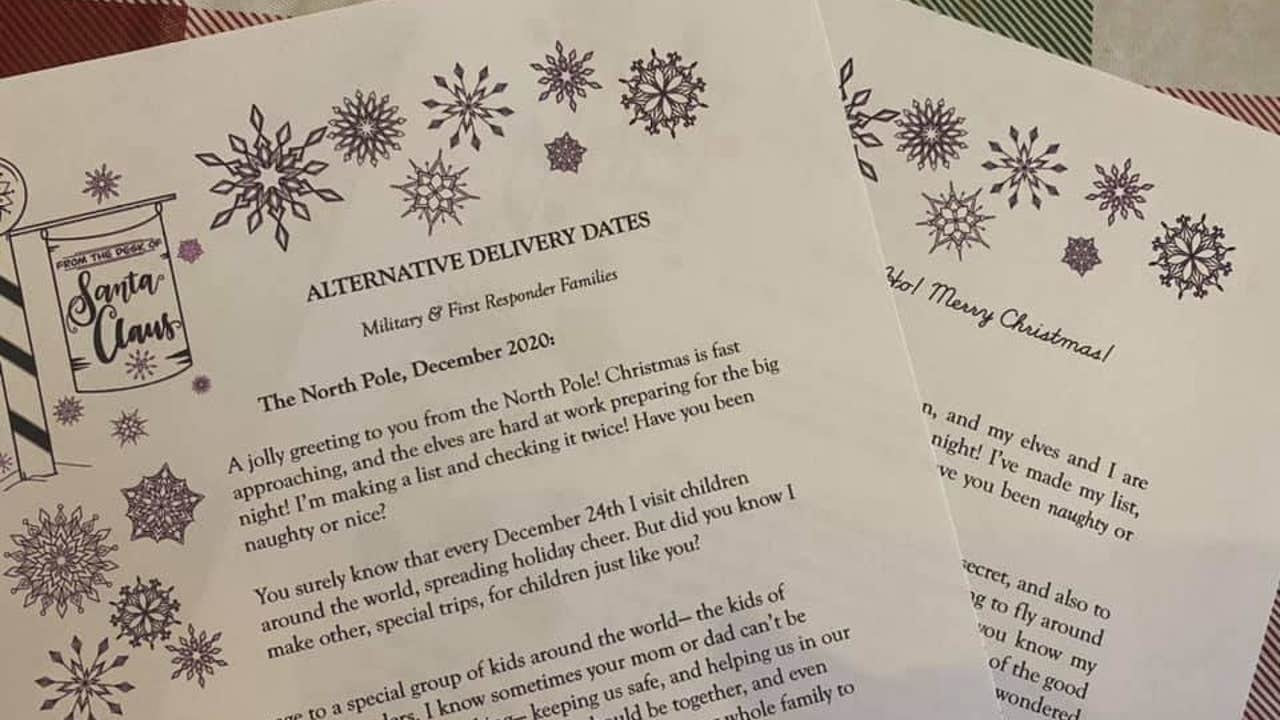 FROM THE DESK OF
Santa
Claus
ALTERNATIVE DELIVERY DATES
Military & First Responder Families
The North Pole, December 2020:
A jolly greeting to you from the North Pole! Christmas is fast
approaching, and the elves are hard at work preparing for the big
night! I'm making a list and checking it twice! Have you been
naughty or nice?
You surely know that every December 24th I visit children
around the world, spreading holiday cheer. But did you know I
make other, special trips, for children just like you?
to a special group of kids around the world– the kids of
I know sometimes your mom or dad can't be
– keeping us safe, and helping us in our
be together, and even
whole family to
Ho! Merry Christmas!
and my elves and I are
night! I've made my list,
you been naughty or
secret, and also to
to fly around
you know my
of the good
wondered